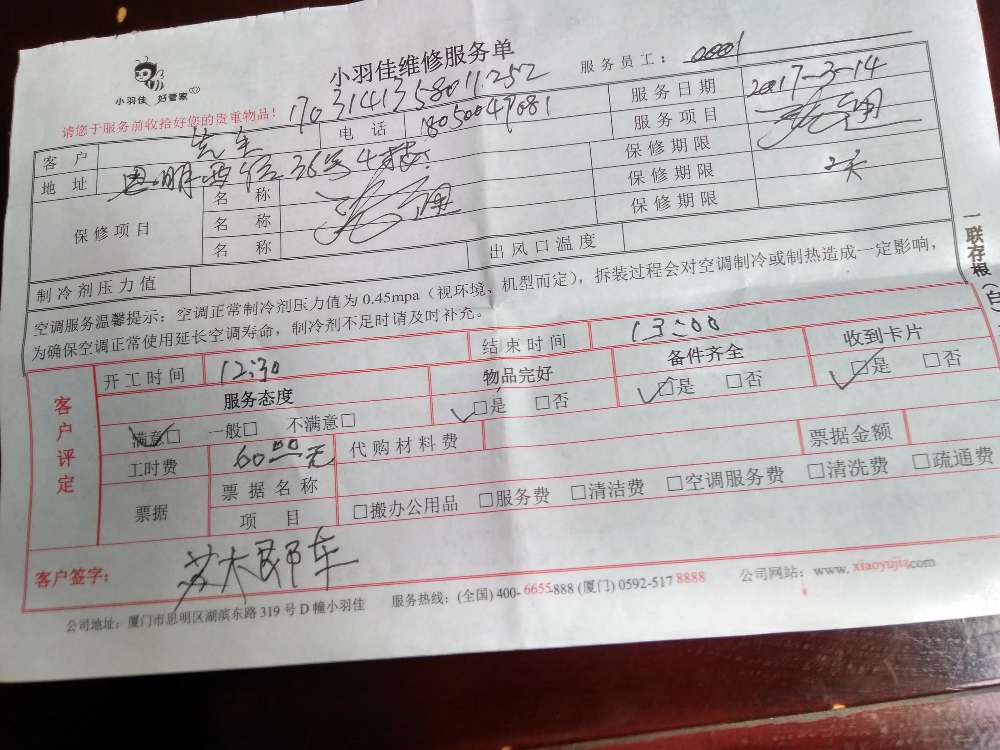 小羽佳维修服务单
服务员工： 0001
小羽佳 好管家
请您于服务前收拾好您的贵重物品！ 1703141358011.252
客户 先生 电话 18050049081 服务日期 2017-3-14
地址 思明 36号4楼 服务项目
保修项目 名称 保修期限
名称 保修期限
名称 保修期限
制冷剂压力值 出风口温度
空调服务温馨提示：空调正常制冷剂压力值为 0.45mpa（视环境、机型而定），拆装过程会对空调制冷或制热造成一定影响，
为确保空调正常使用延长空调寿命，制冷剂不足时请及时补充。
一联存根（白
客户评定
开工时间 12:30 结束时间 13:00
服务态度 物品完好 备件齐全 收到卡片
满意□ 一般□ 不满意□ □是 □否 □是 □否 □是 □否
工时费 60.00元 代购材料费 票据金额
票据 票据名称
项目 □搬办公用品 □服务费 □清洁费 □空调服务费 □清洗费 □疏通费
客户签字：
公司地址：厦门市思明区湖滨东路 319 号 D 幢小羽佳 服务热线：(全国) 400-6655-888 (厦门) 0592-517 8888 公司网站：www. xiaoyujia.com